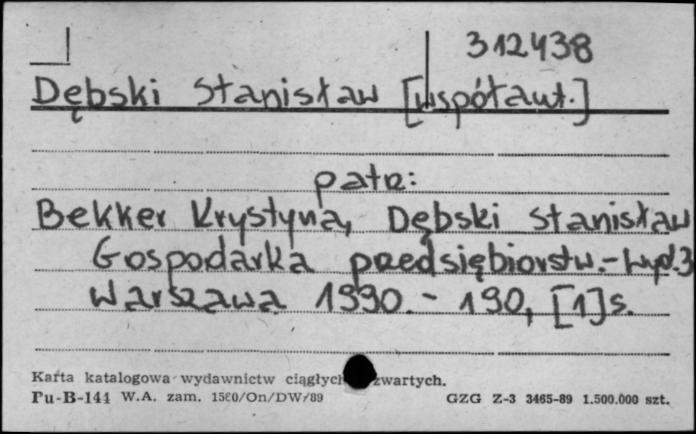 312438
Dębski Stanisław [współaut.]
patrz:
Bekker Krystyna, Dębski Stanisław
Gospodarka przedsiębiorstw.- Wyd.3
Warszawa 1990.- 190, [1]s.
Karta katalogowa wydawnictw ciągłych zwartych.
Pu-B-144 W.A. zam. 1580/On/DW/89 GZG Z-3 3465-89 1.500.000 szt.